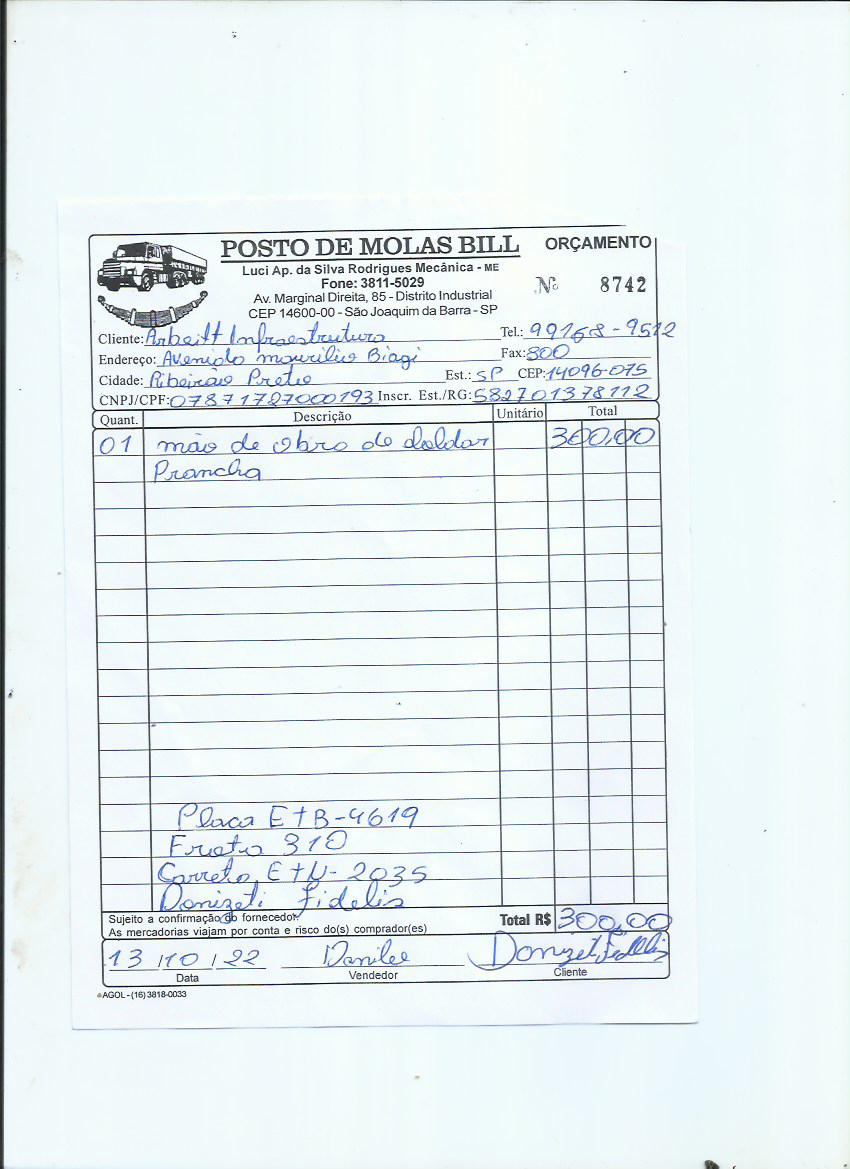 POSTO DE MOLAS BILL
ORÇAMENTO
Luci Ap. da Silva Rodrigues Mecânica - ME
Fone: 3811-5029
Av. Marginal Direita, 85 - Distrito Industrial
CEP 14600-00 - São Joaquim da Barra - SP
Nº 8742
Cliente: Arbeitt Infraestrutura Tel.: 99168-9512
Endereço: Avenida maurilio Biagi Fax: 800
Cidade: Ribeirão Preto Est.: SP CEP: 14096-075
CNPJ/CPF: 07871727000193 Inscr. Est./RG: 582701378112
Quant. Descrição Unitário Total
01 mão de obra de soldar 300,00
Prancha
Placa ETB-4619
Frota 310
Carreta ETU-2035
Donizeti Fidelis
Sujeito a confirmação do fornecedor.
As mercadorias viajam por conta e risco do(s) comprador(es)
Total R$ 300,00
13/10/22 Danilee Donizeti Fidelis
Data Vendedor Cliente
AGOL - (16) 3818-0033